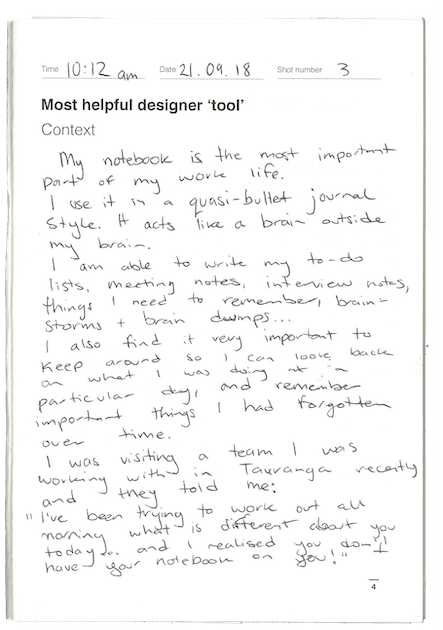 Time 10:12 am Date 21.09.18 Shot number 3
Most helpful designer 'tool'
Context
My notebook is the most important
part of my work life.
I use it in a quasi-bullet journal
style. It acts like a brain outside
my brain.
I am able to write my to-do
lists, meeting notes, interview notes,
things I need to remember, brain-
storms + brain dumps...
I also find it very important to
keep around so I can look back
on what I was doing at a
particular day, and remember
important things I had forgotten
over time.
I was visiting a team I was
working with in Tauranga recently
and they told me:
"I've been trying to work out all
morning what is different about you
today... and I realised you don't
have your notebook on you!"
4